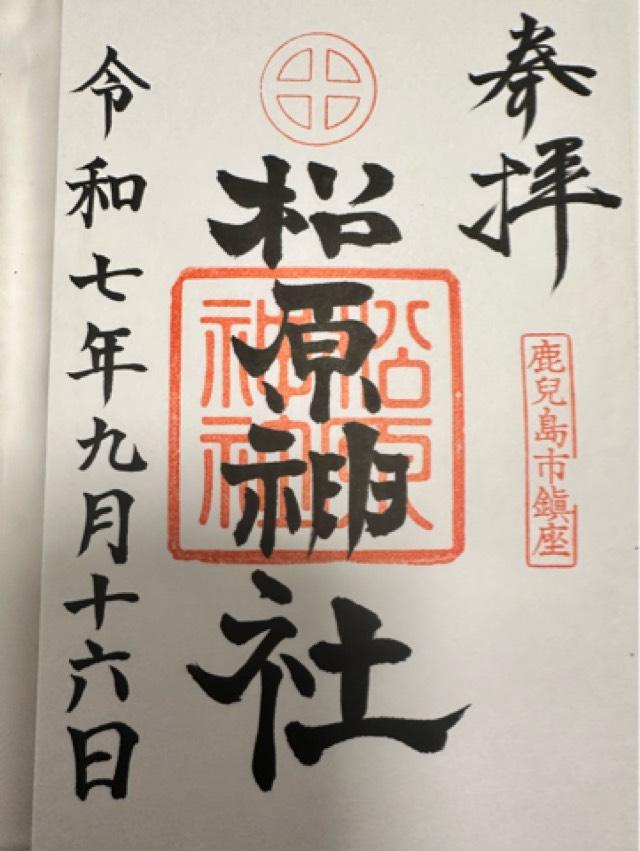 奉拝
鹿兒島市鎮座
松原神社
松原神社
令和七年九月十六日